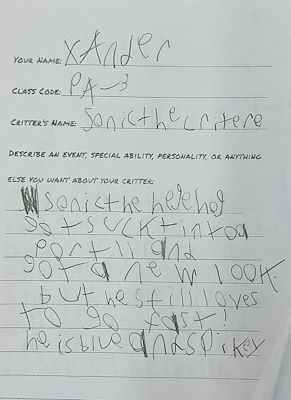 YOUR NAME: XAnder
CLASS CODE: PA-3
CRITTER'S NAME: Sonic the critere
DESCRIBE AN EVENT, SPECIAL ABILITY, PERSONALITY, OR ANYTHING
ELSE YOU WANT ABOUT YOUR CRITTER:
sonic the hegehog
got suckt into a
portll and
got a new look.
but he still loves
to go fast!
he is blue and spikey